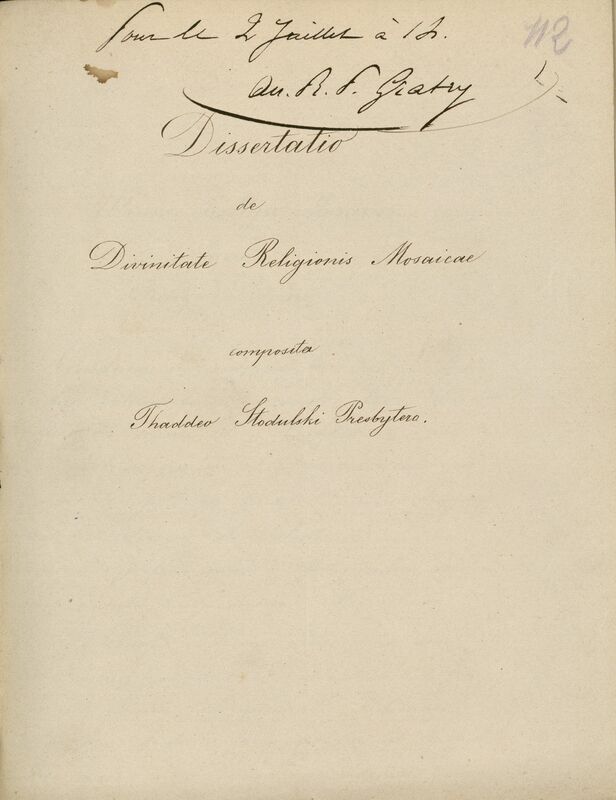 Pour le 2 Juillet à 1h.
112
au. R. P. Gratry
Dissertatio
de
Divinitate Religionis Mosaicae
composita
Thaddeo Stodulski Presbytero.